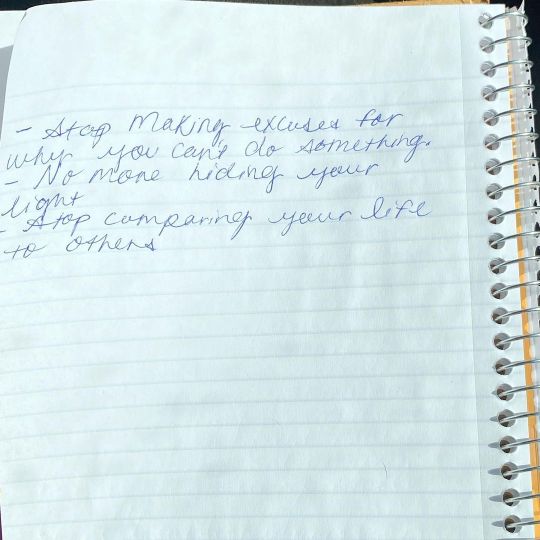 - Stop Making excuses for
why you can't do something.
- No more hiding your
light
- Stop comparing your life
to others